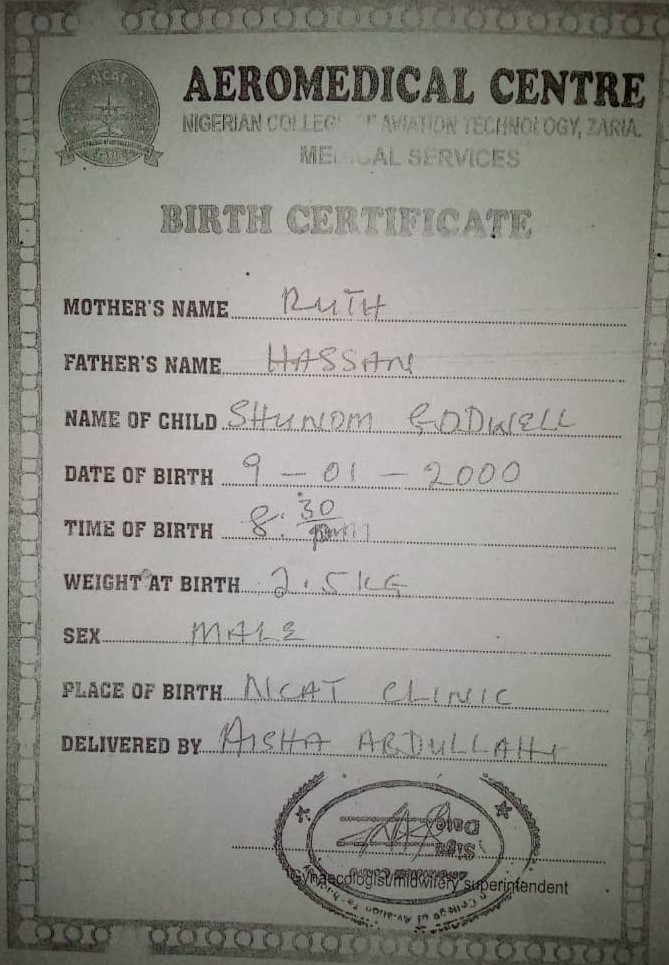 NCAT
AEROMEDICAL CENTRE
NIGERIAN COLLEGE OF AVIATION TECHNOLOGY, ZARIA.
MEDICAL SERVICES
BIRTH CERTIFICATE
MOTHER'S NAME RUTH
FATHER'S NAME HASSAN
NAME OF CHILD SHUNOM GODWELL
DATE OF BIRTH 9 - 01 - 2000
TIME OF BIRTH 8:30 pm
WEIGHT AT BIRTH 2.5KG
SEX MALE
PLACE OF BIRTH NCAT CLINIC
DELIVERED BY AISHA ABDULLAHI
Date
Sign
Gynaecologist/midwifery superintendent
College of Aviation